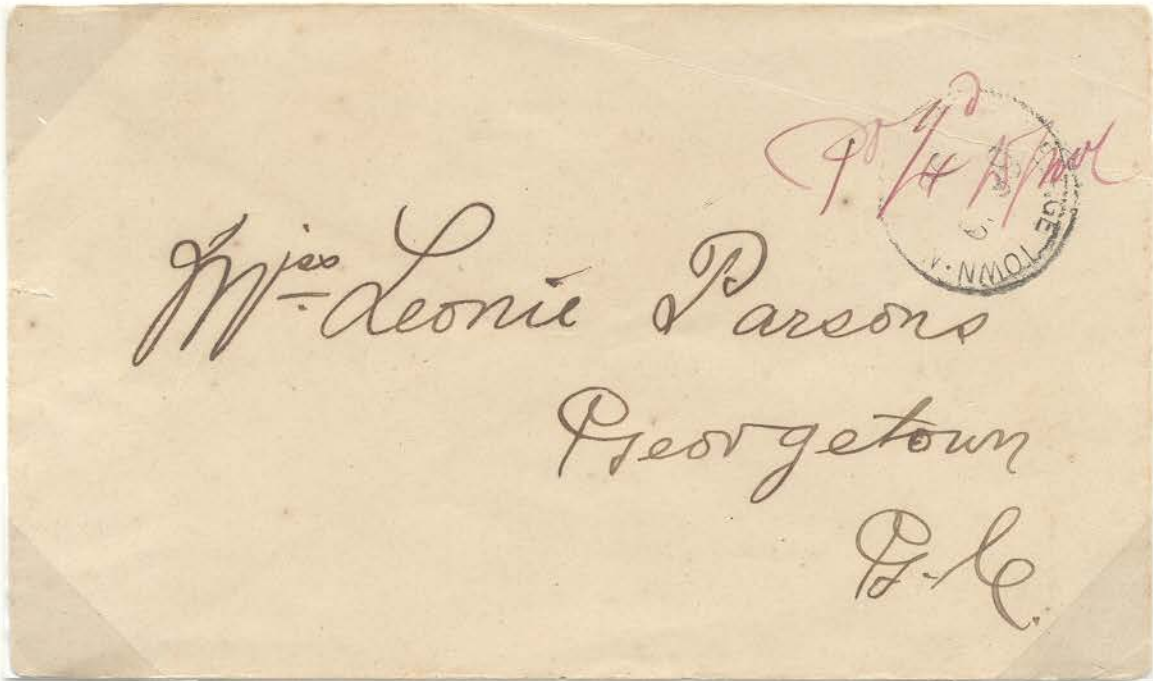 Pd 1/4d
GE TOWN
Miss Leonie Parsons
Georgetown
G. C.